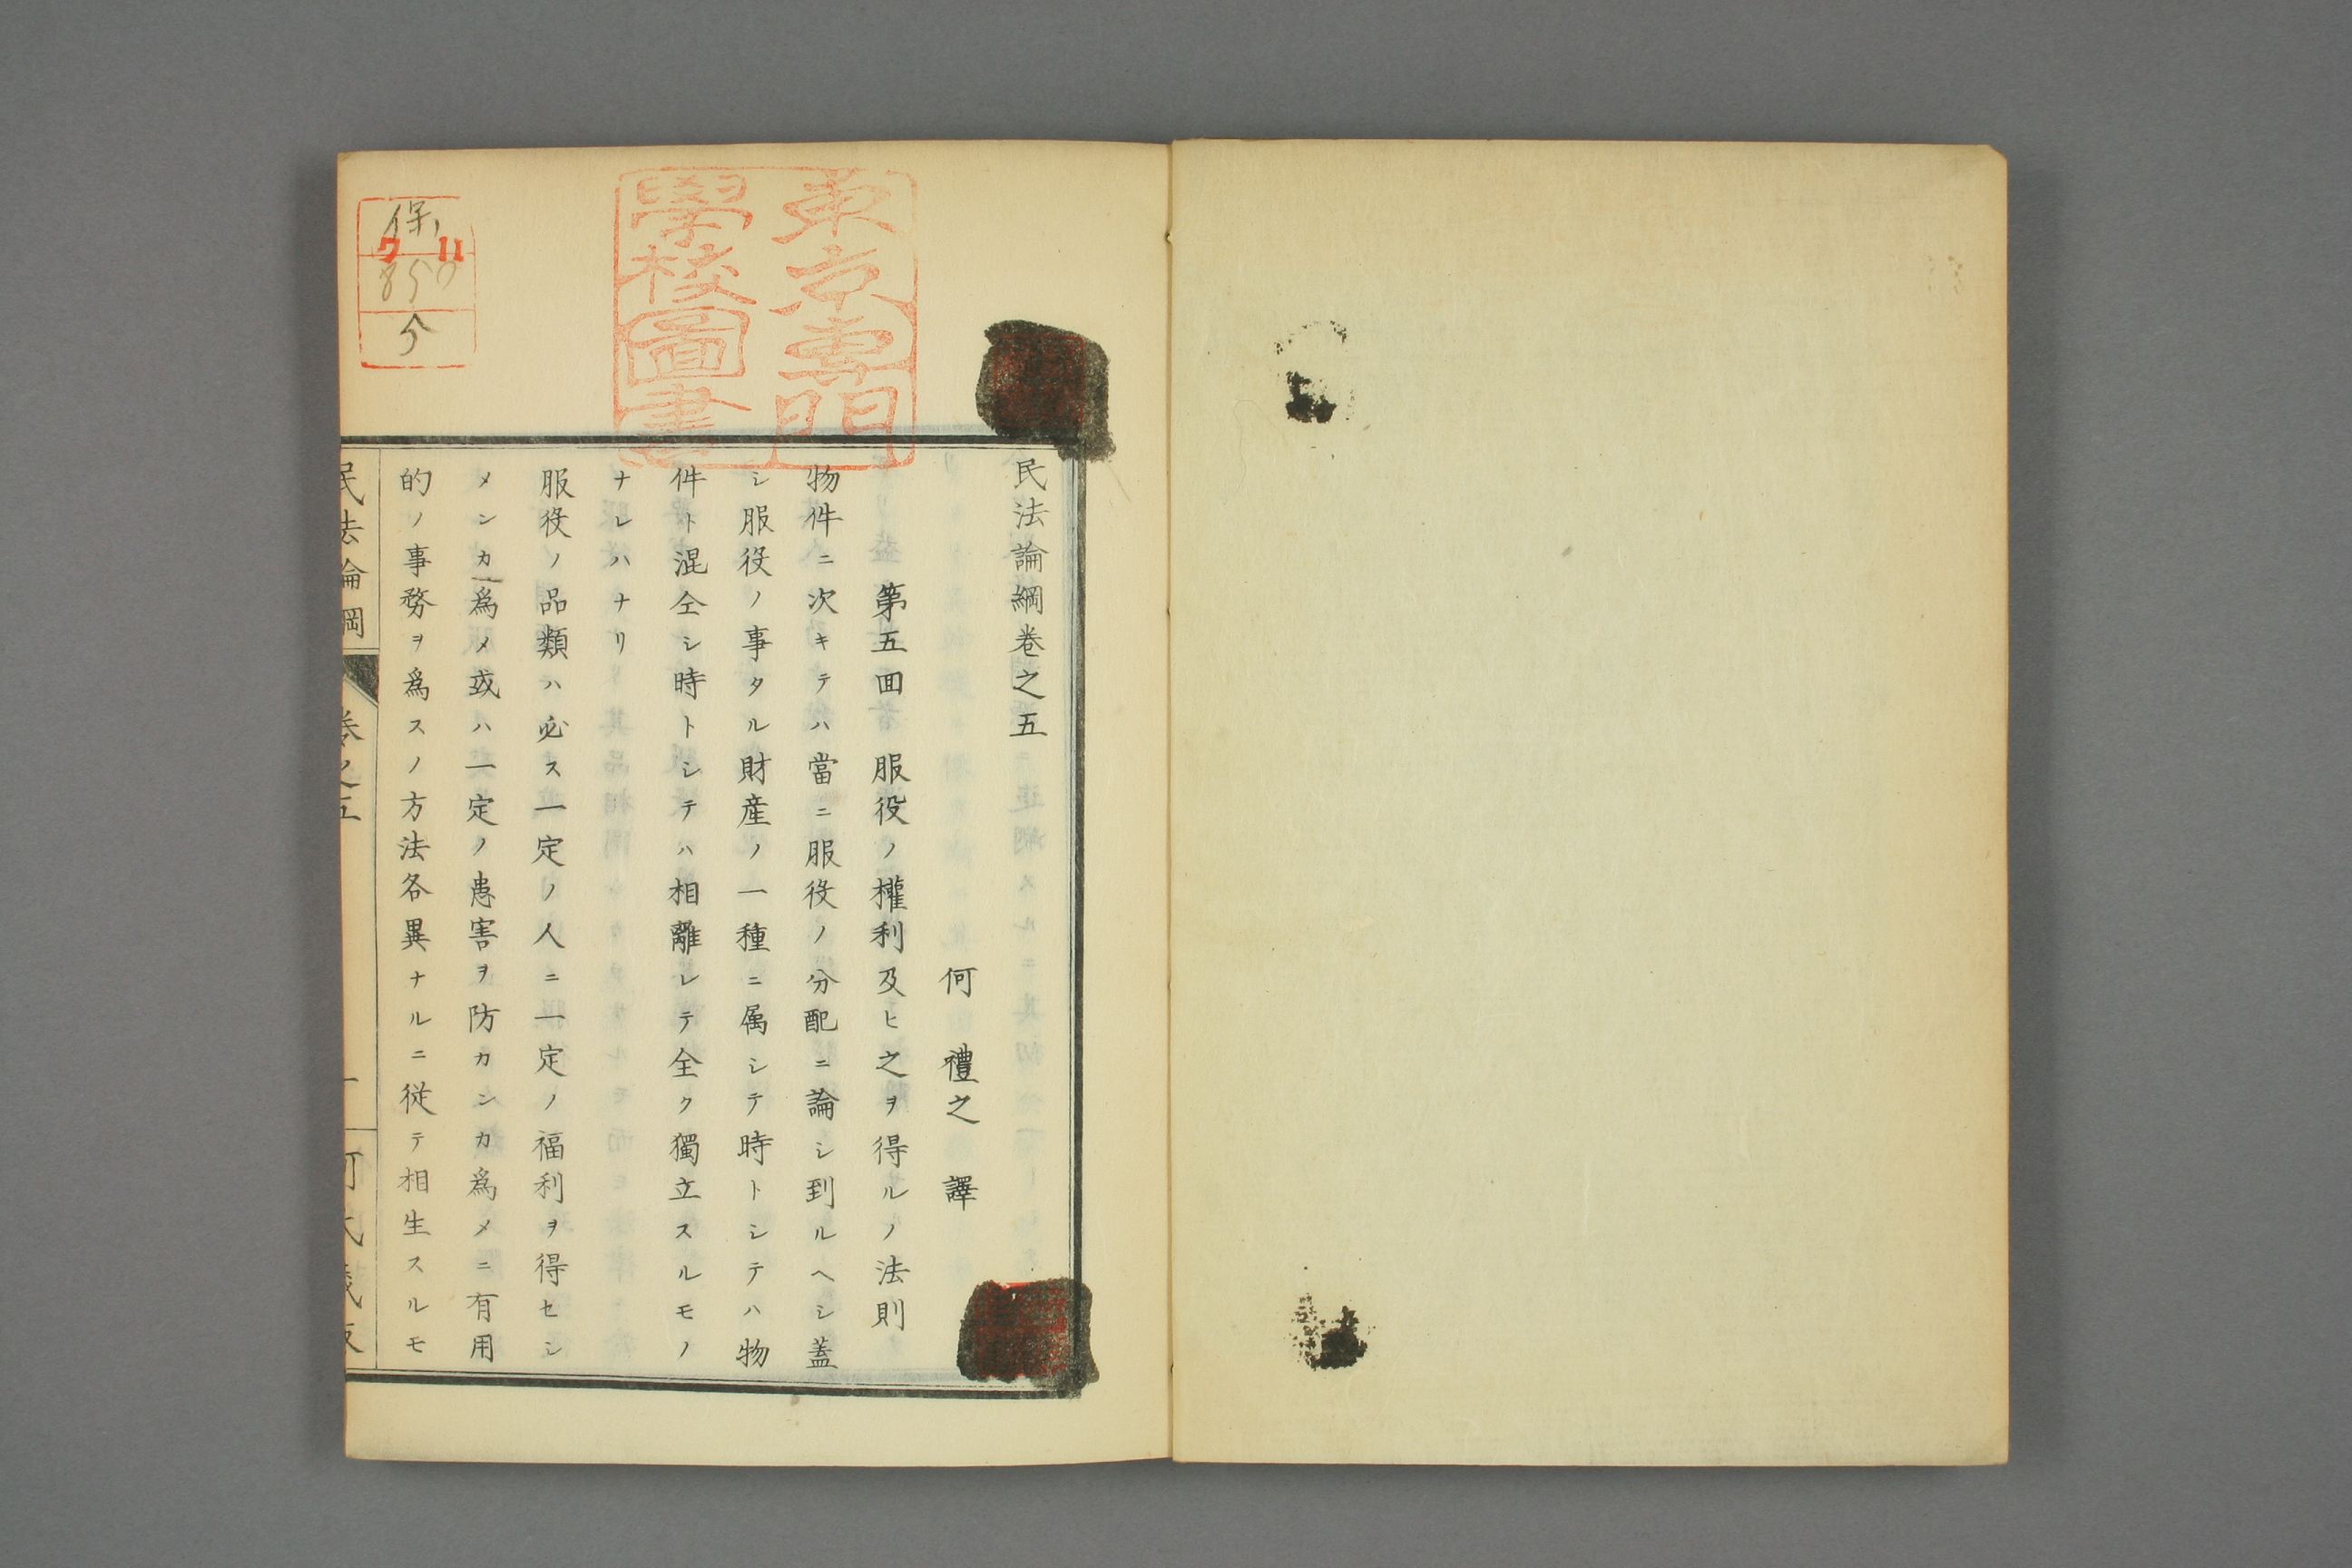 民法論綱卷之五
何禮之譯
第五回 服役ノ權利及ヒ之ヲ得ルノ法則
物件ニ次キテハ當ニ服役ノ分配ニ論シ到ルヘシ蓋
シ服役ノ事タル財産ノ一種ニ属シテ時トシテハ物
件ト混仝シ時トシテハ相離レテ全ク獨立スルモノ
ナレハナリ
服役ノ品類ハ必ス一定ノ人ニ一定ノ福利ヲ得セシ
メンカ爲メ或ハ一定ノ患害ヲ防カンカ爲メニ有用
的ノ事務ヲ爲スノ方法各異ナルニ従テ相生スルモ
民法論綱
卷之五
一
東京專門
學校圖書
保
7 11
850
5